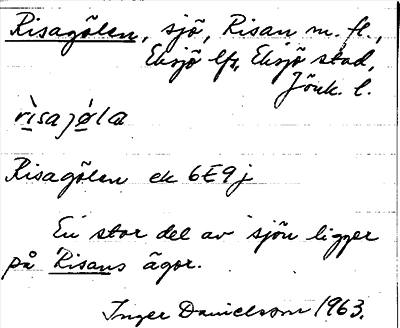 Risagölen, sjö, Risan m. fl.,
Eksjö lfs, Eksjö stad,
Jönk. l.
rìsajø̀la
Risagölen ek 6E9j
En stor del av sjön ligger
på Risans ägor.
Inger Danielsson 1963.